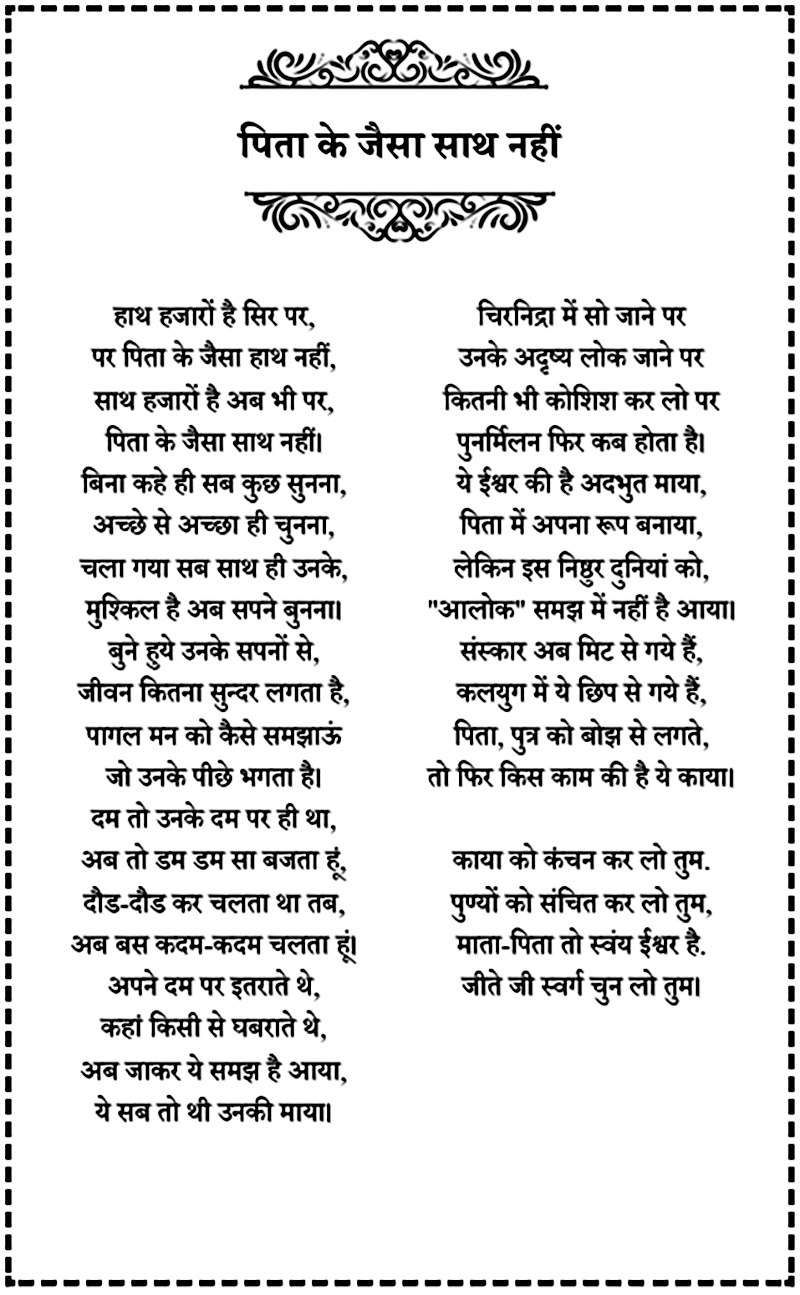 पिता के जैसा साथ नहीं
हाथ हजारों है सिर पर,
पर पिता के जैसा हाथ नहीं,
साथ हजारों है अब भी पर,
पिता के जैसा साथ नहीं।
बिना कहे ही सब कुछ सुनना,
अच्छे से अच्छा ही चुनना,
चला गया सब साथ ही उनके,
मुश्किल है अब सपने बुनना।
बुने हुये उनके सपनों से,
जीवन कितना सुन्दर लगता है,
पागल मन को कैसे समझाऊं
जो उनके पीछे भगता है।
दम तो उनके दम पर ही था,
अब तो डम डम सा बजता हूं,
दौड-दौड कर चलता था तब,
अब बस कदम-कदम चलता हूं।
अपने दम पर इतराते थे,
कहां किसी से घबराते थे,
अब जाकर ये समझ है आया,
ये सब तो थी उनकी माया।
चिरनिद्रा में सो जाने पर
उनके अदृष्य लोक जाने पर
कितनी भी कोशिश कर लो पर
पुनर्मिलन फिर कब होता है।
ये ईश्वर की है अदभुत माया,
पिता में अपना रूप बनाया,
लेकिन इस निष्ठुर दुनियां को,
"आलोक" समझ में नहीं है आया।
संस्कार अब मिट से गये हैं,
कलयुग में ये छिप से गये हैं,
पिता, पुत्र को बोझ से लगते,
तो फिर किस काम की है ये काया।
काया को कंचन कर लो तुम.
पुण्यों को संचित कर लो तुम,
माता-पिता तो स्वंय ईश्वर है.
जीते जी स्वर्ग चुन लो तुम।